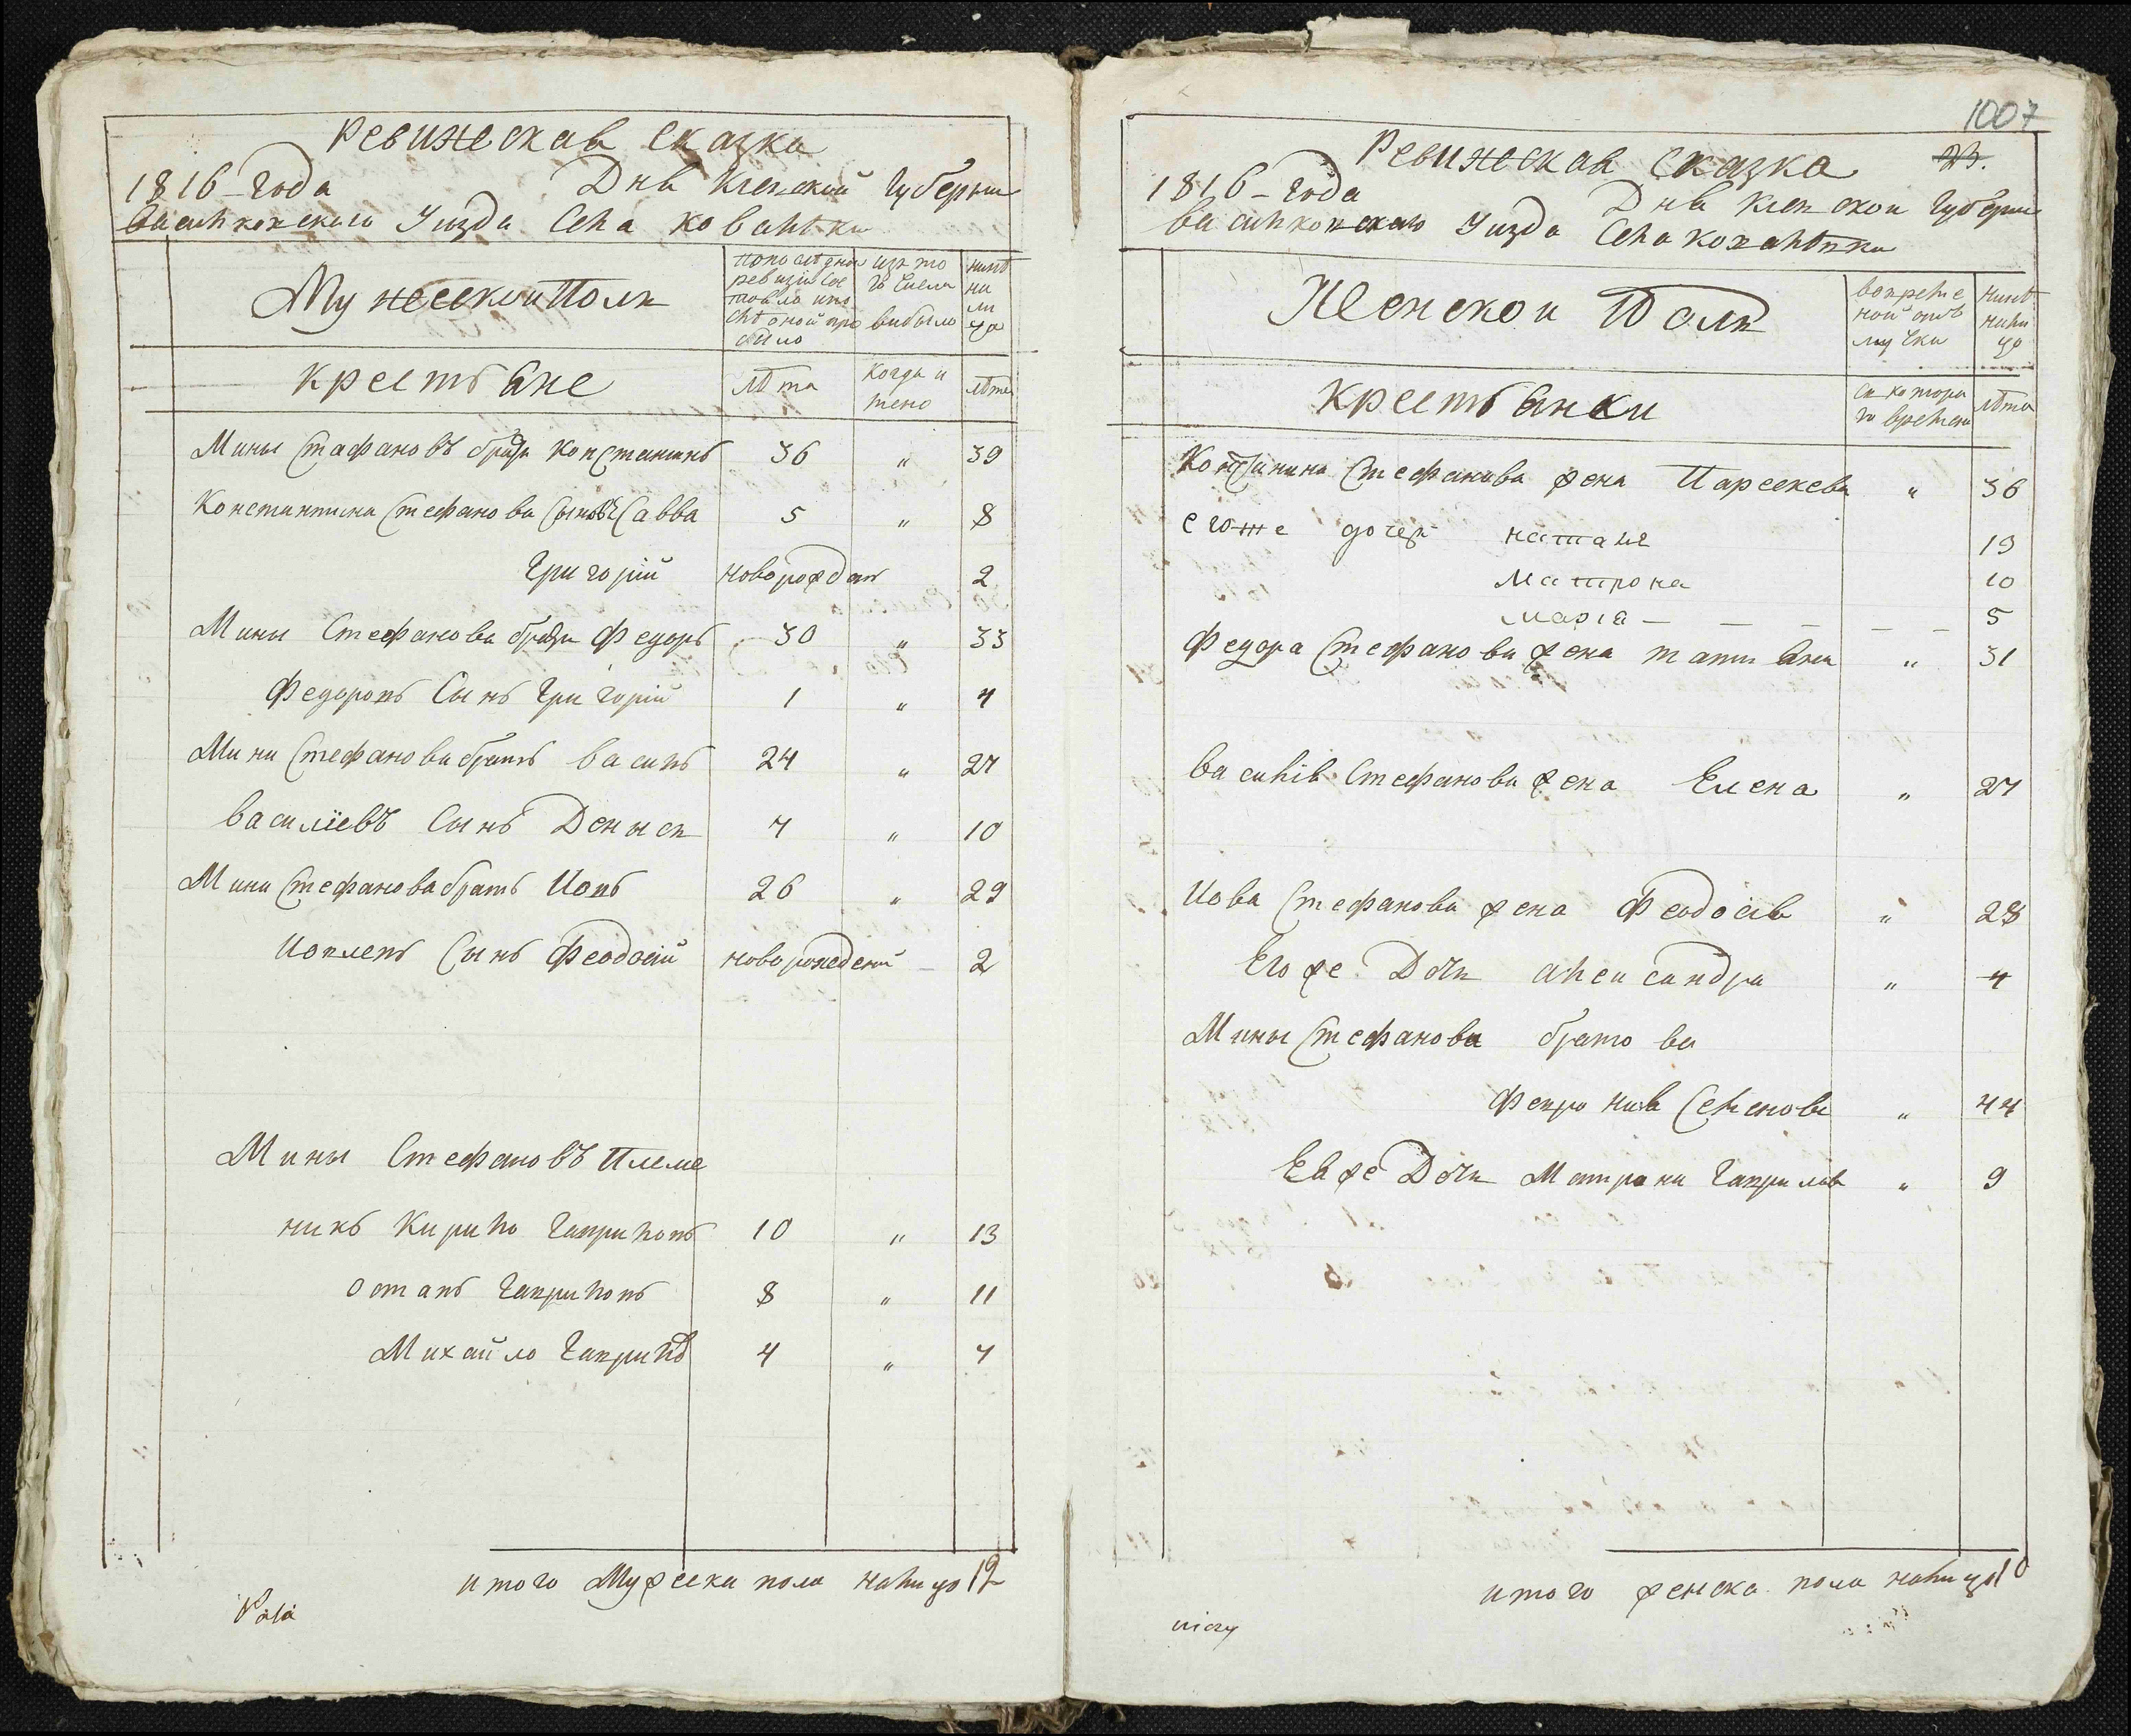 Ревижская сказка
1816-года Дня Киевской Губернии
Василковского Уизда Села Ковалѣвки
Мужеской Полъ
по последной ревизіи состояло и после оной прибыло
изъ того числа выбыло
нинѣ на лицо
крестьяне
лѣта
когда и
лѣта
Мины Стафановъ братъ Константинъ 36 " 39
Константина Стефанова Сыновъя Савва 5 " 8
Григорій новорождан 2
Мины Стефанова братъ Федоръ 30 " 33
Федоровъ Сынъ Григорій 1 " 4
Мини Стефанова братъ Василь 24 " 27
Василіевъ Сынъ Денысъ 7 " 10
Мини Стефанова братъ Иовъ 26 " 29
Иовлевъ Сынъ Феодосій новорожедений 2
Мины Стефановъ Племе
никъ Кирило Гавриловъ 10 " 13
Остапъ Гавриловъ 8 " 11
Михайло Гаврилов 4 " 7
итого Мужеска пола налицо 12
1007
23.
Ревижская Сказка
1816-года Дня Киевской Губернии
Василковскаго Уизда Села Ковалѣвки
Женской Полъ
во временной отлучки
Нинѣ налицо
Крестьянки
съ котораго времени
лѣта
Константина Стефанова жена Парескева " 36
егоже дочери наталя 13
матрона 10
маріа 5
Федора Стефанова жена татияна " 31
Василія Стефанова жена Елена " 27
Иова Стефанова жена Феодосія " 28
Егоже Дочъ Александра " 4
Мины Стефанова братова
Февронія Семенова " 44
Еяже Дочъ Матрона Гаврилова " 9
итого женска пола налицо 10